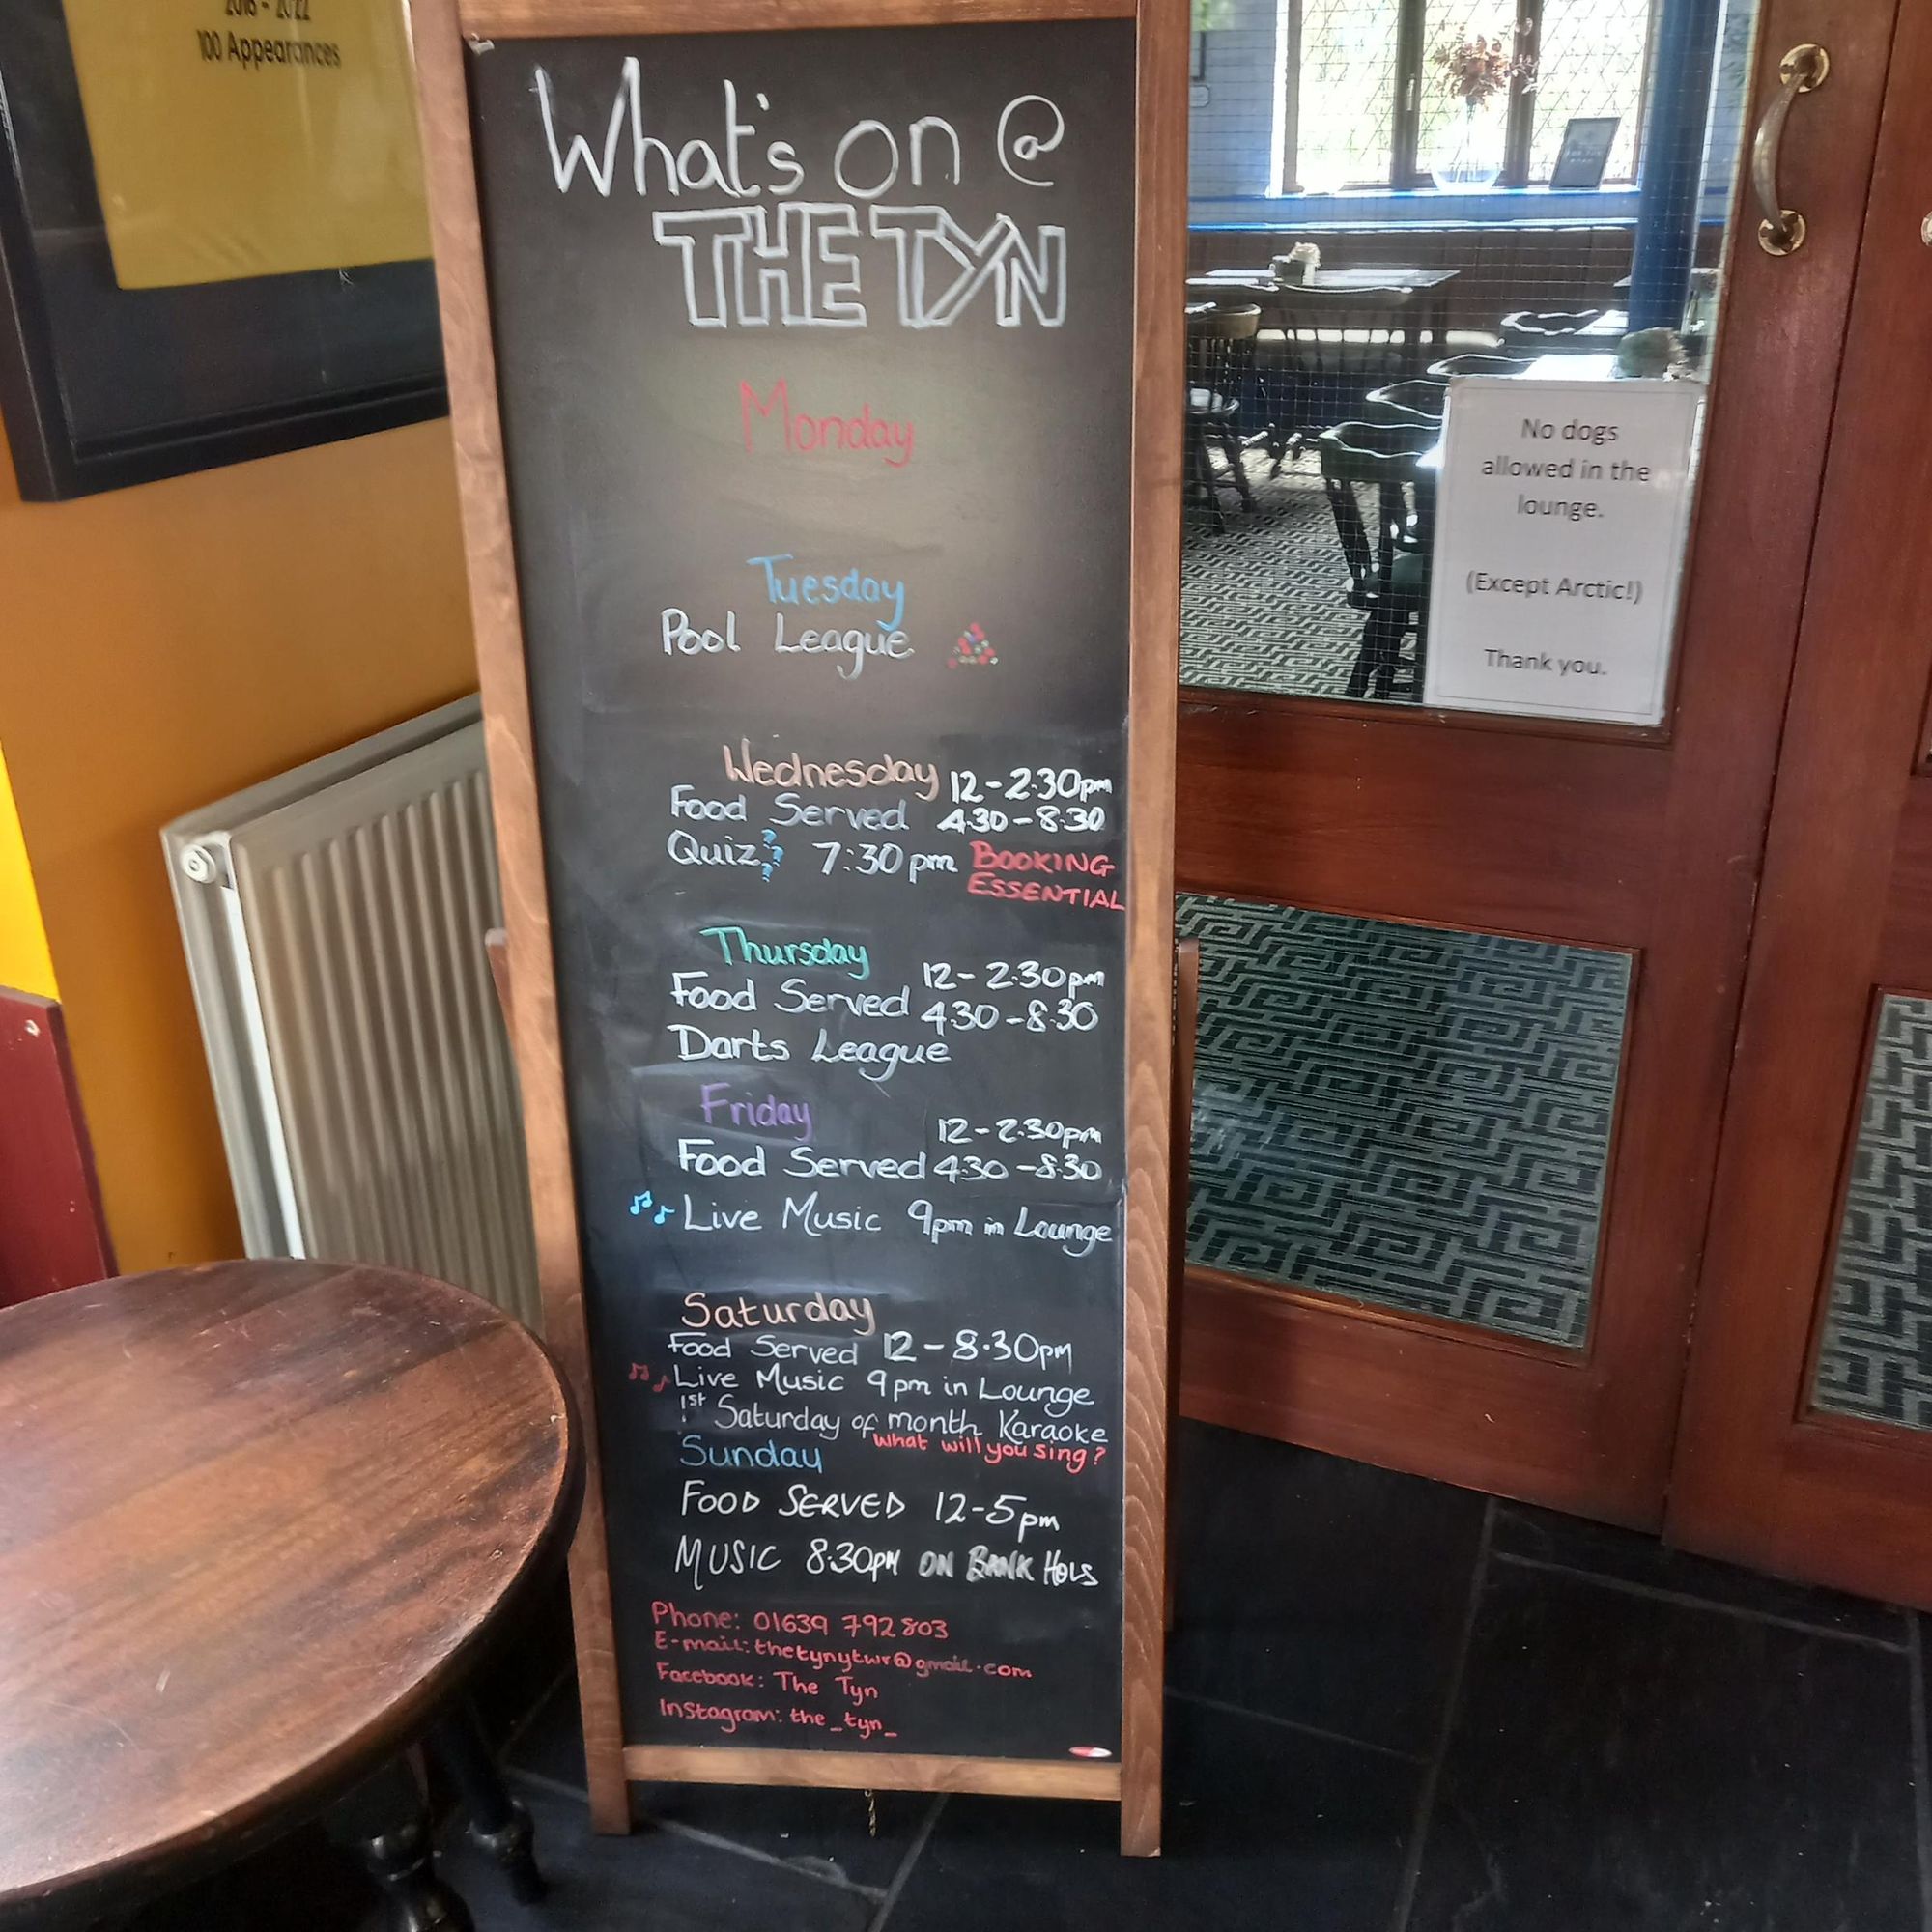 2018 - 2022
100 Appearances
What's on @
THE TYN
Monday
Tuesday
Pool League
Wednesday 12-2.30pm
Food Served 4.30-8.30
Quiz??? 7:30pm BOOKING
ESSENTIAL
Thursday
12-2.30pm
Food Served 4.30-8.30
Darts League
Friday
12-2.30pm
Food Served 4.30-8.30
Live Music 9pm in Lounge
Saturday
Food Served 12-8.30pm
Live Music 9pm in Lounge
1st Saturday of month Karaoke
What will you sing?
Sunday
FOOD SERVED 12-5pm
MUSIC 8.30PM ON BANK HOLS
Phone: 01639 792803
E-mail: thetynytwr@gmail.com
Facebook: The Tyn
Instagram: the_tyn_
No dogs
allowed in the
lounge.
(Except Arctic!)
Thank you.